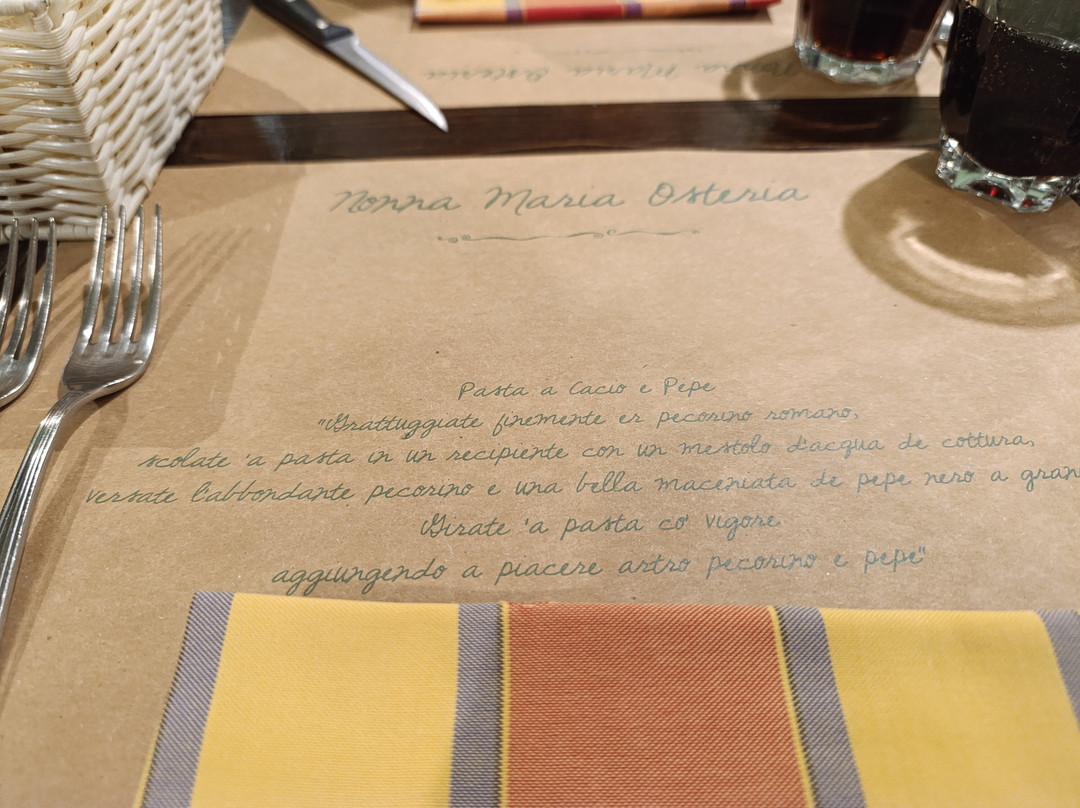 Nonna Maria Osteria
Nonna Maria Osteria
Pasta a Cacio e Pepe
"Grattuggiate finemente er pecorino romano,
scolate 'a pasta in un recipiente con un mestolo d'acqua de cottura,
versate l'abbondante pecorino e una bella maceniata de pepe nero a gran
Girate 'a pasta co' vigore
aggiungendo a piacere artro pecorino e pepe"